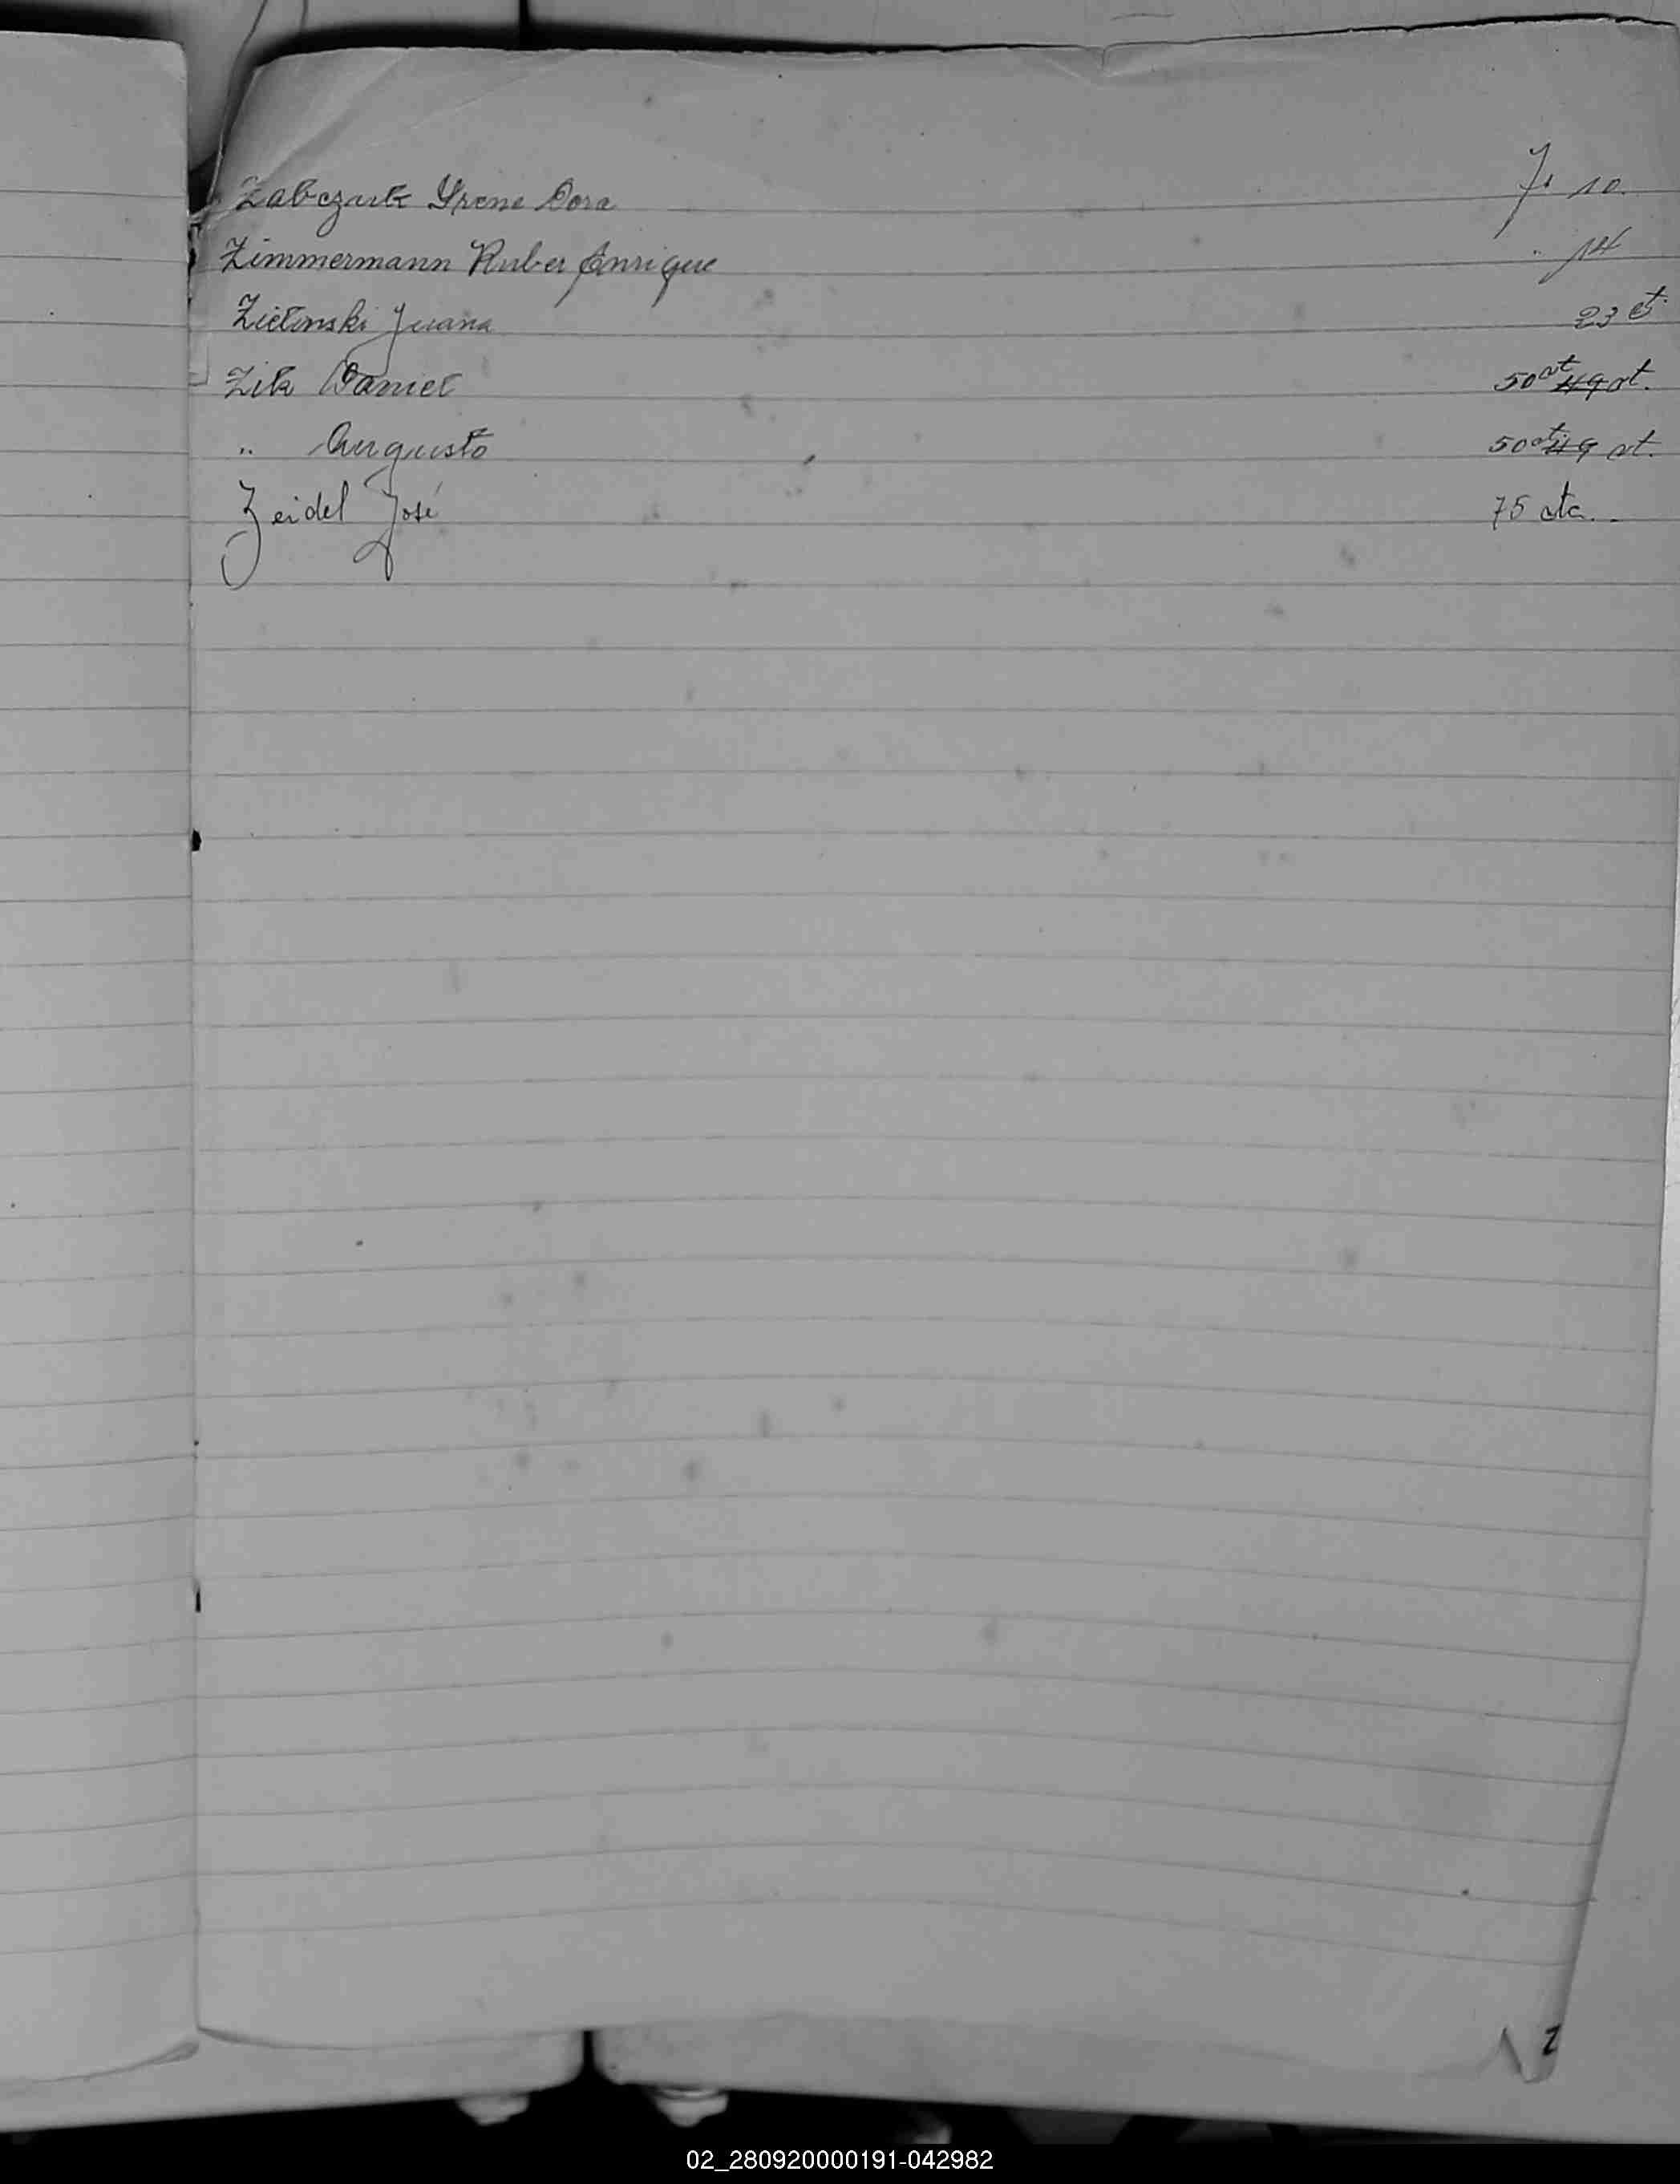 Zabczuk Yrene Dora Fs 10.
Zimmermann Ruber Enrique " 14
Zielinski Juana 23 ct.
Zik Daniel 50 at 49 at.
" Augusto 50 at 49 at.
Zeidel José 75 ata..
Z
02_280920000191-042982